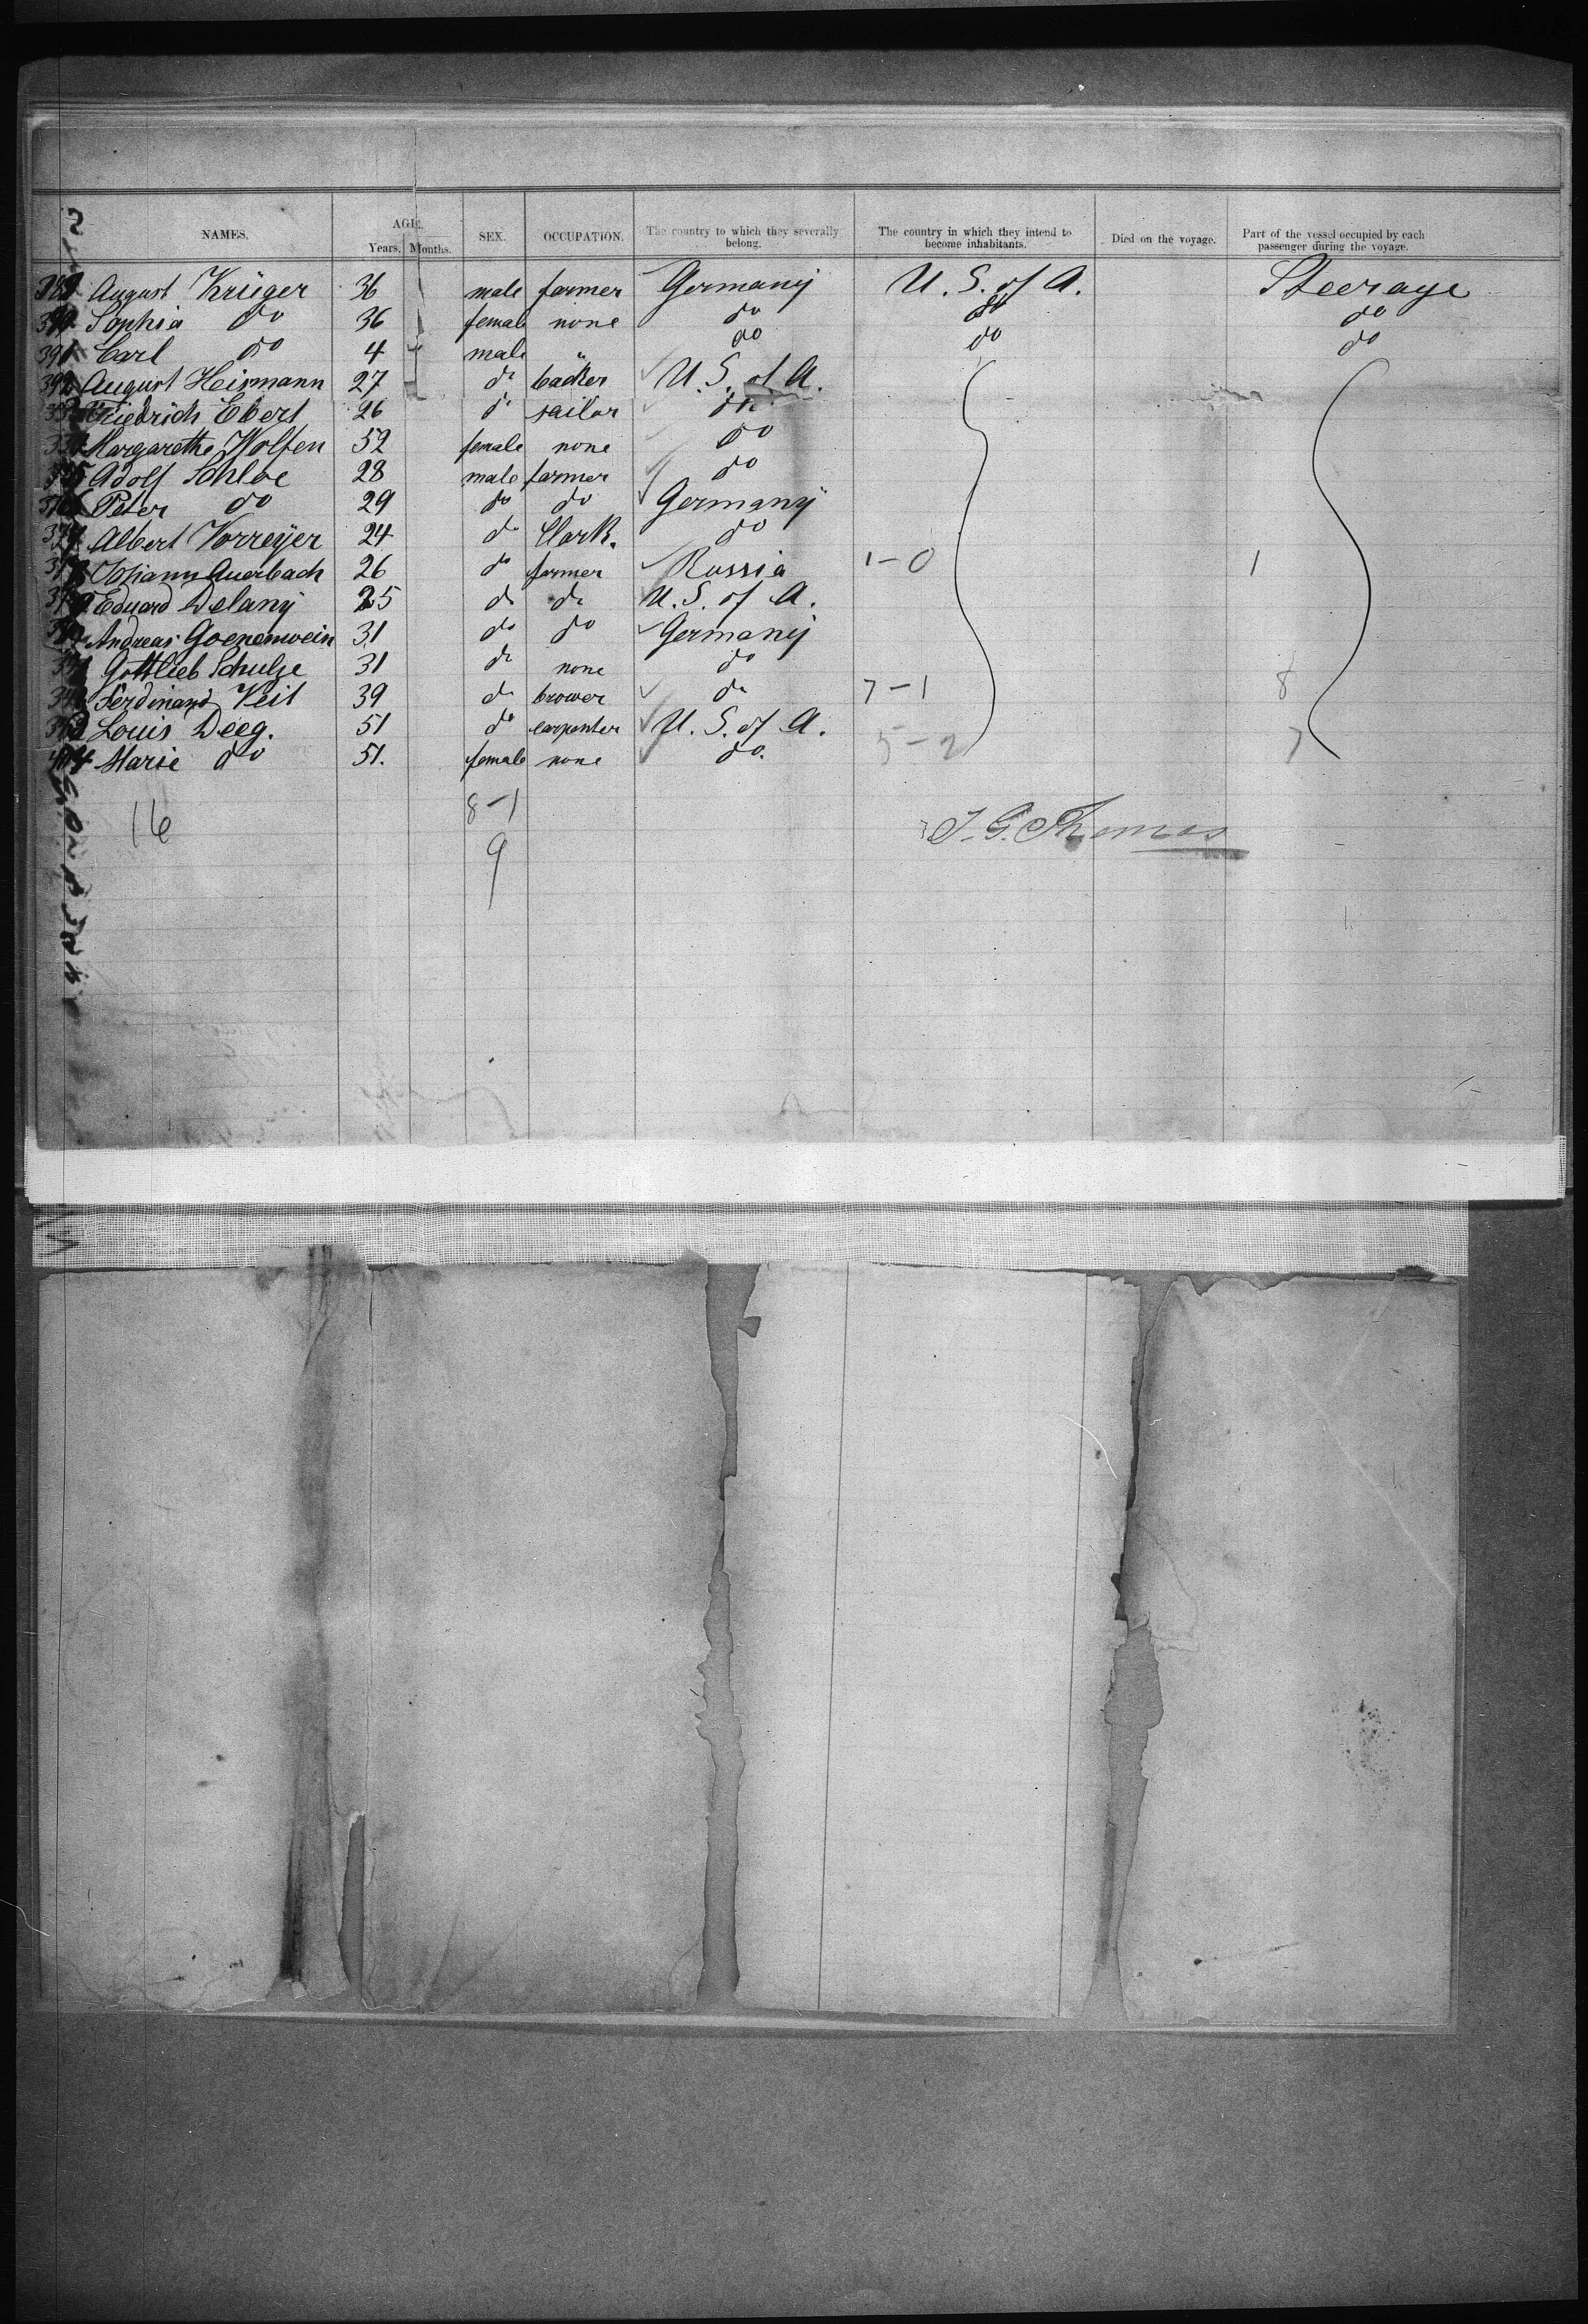 NAMES. AGE. Years. Months. SEX. OCCUPATION. The country to which they severally belong. The country in which they intend to become inhabitants. Died on the voyage. Part of the vessel occupied by each passenger during the voyage.
389 August Krüger 36 male farmer Germany U. S. of A. Steerage
390 Sophia do 36 female none do do do
391 Carl do 4 male " do do do
392 August Heismann 27 do backer U. S. of A.
Friedrich Ebert 26 do sailor do
Margarethe Wolfen 52 female none do
Adolf Schloe 28 male farmer do
Peter do 29 do do Germany
Albert Vorreyer 24 do Clark. do
Johann Auerbach 26 do farmer Russia 1-0 1
Eduard Delany 25 do do U. S. of A.
Andreas Goenenwein 31 do do Germany
Gottlieb Schulze 31 do none do
Ferdinand Veit 39 do brower do 7-1 8
Louis Deeg. 51 do carpenter U. S. of A. 5-2 7
Marie do 51. female none do.
16 8-1
9
J. G. Thomas